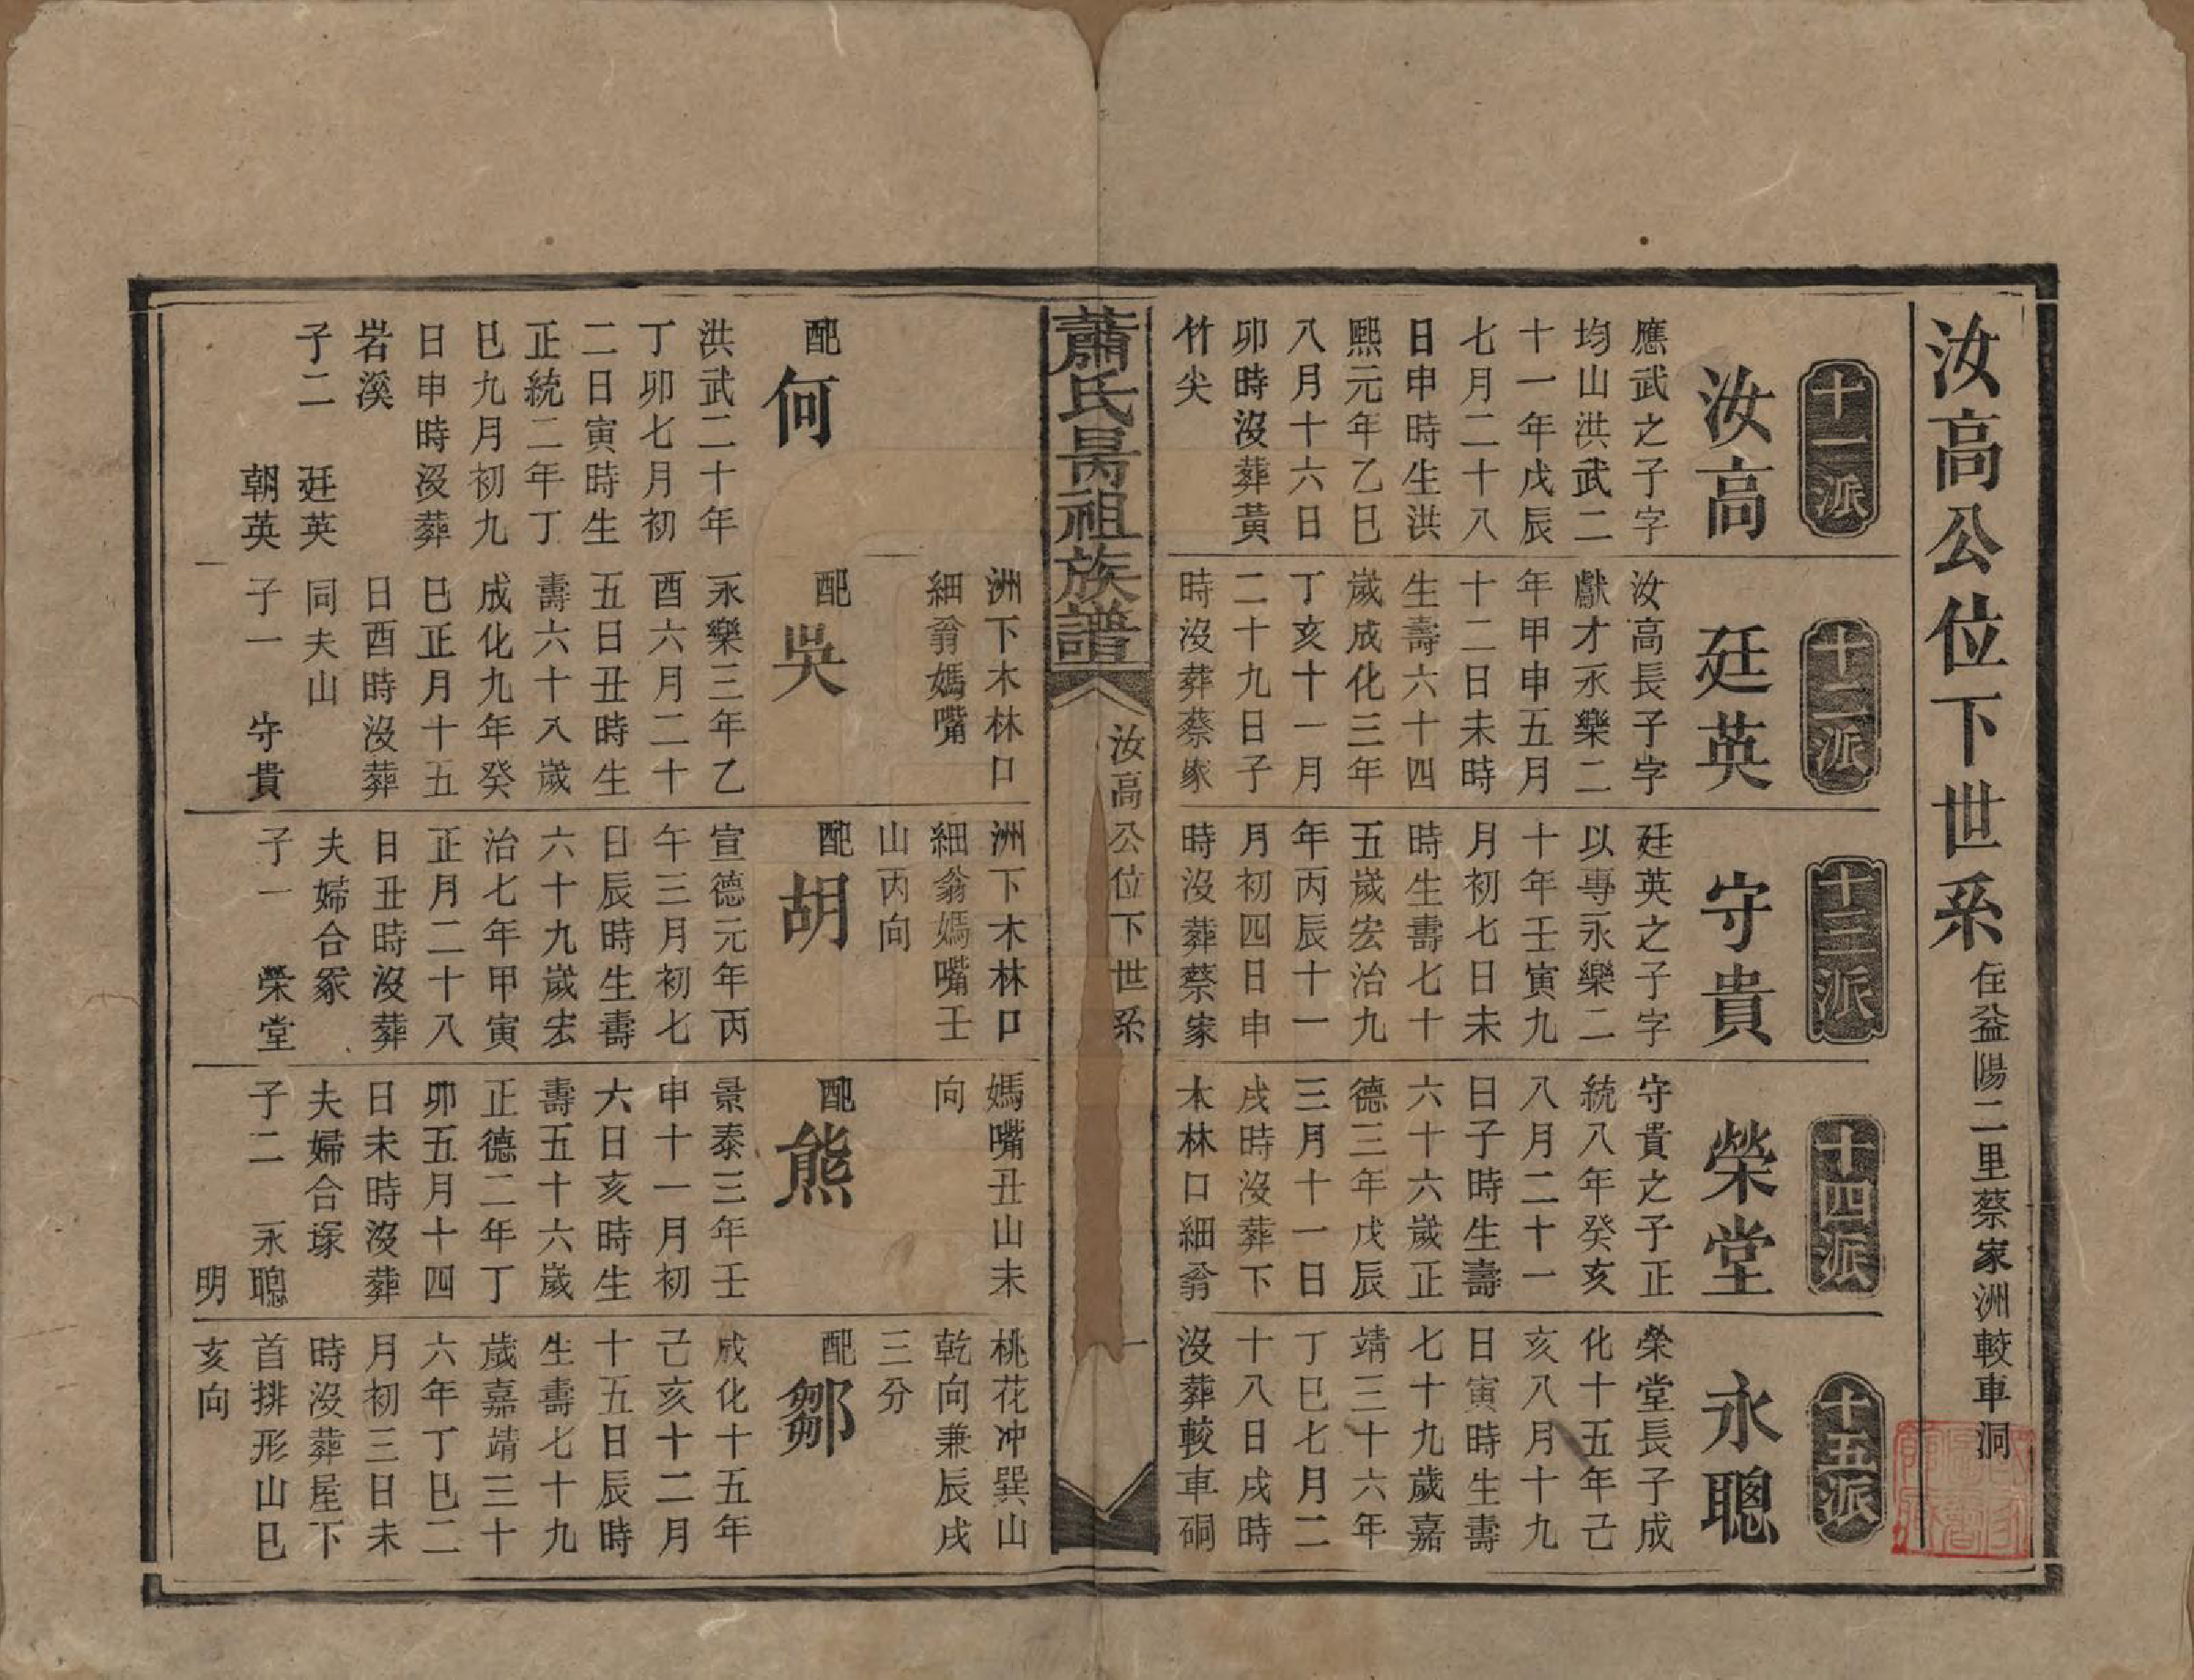 汝高公位下世系 住益陽二里蔡家洲較車洞
十一派
汝高
應武之子字
均山洪武二
十一年戊辰
七月二十八
日申時生洪
熙元年乙巳
八月十六日
卯時沒葬黃
竹尖
配何
洪武二十年
丁卯七月初
二日寅時生
正統二年丁
巳九月初九
日申時沒葬
岩溪
子二 廷英
朝英
十二派
廷英
汝高長子字
獻才永樂二
年甲申五月
十二日未時
生壽六十四
歲成化三年
丁亥十一月
二十九日子
時沒葬蔡家
洲下木林口
細翁媽嘴
配吳
永樂三年乙
酉六月二十
五日丑時生
壽六十八歲
成化九年癸
巳正月十五
日酉時沒葬
同夫山
子一 守貴
十三派
守貴
廷英之子字
以專永樂二
十年壬寅九
月初七日未
時生壽七十
五歲宏治九
年丙辰十一
月初四日申
時沒葬蔡家
洲下木林口
細翁媽嘴壬
山丙向
配胡
宣德元年丙
午三月初七
日辰時生壽
六十九歲宏
治七年甲寅
正月二十八
日丑時沒葬
夫婦合冢
子一 榮堂
十四派
榮堂
守貴之子正
統八年癸亥
八月二十一
日子時生壽
六十六歲正
德三年戊辰
三月十一日
戌時沒葬下
木林口細翁
媽嘴丑山未
向
配熊
景泰三年壬
申十一月初
六日亥時生
壽五十六歲
正德二年丁
卯五月十四
日未時沒葬
夫婦合塚
子二 永聰
明
十五派
永聰
榮堂長子成
化十五年己
亥八月十九
日寅時生壽
七十九歲嘉
靖三十六年
丁巳七月二
十八日戌時
沒葬較車硐
桃花冲巽山
乾向兼辰戌
三分
配鄒
成化十五年
己亥十二月
十五日辰時
生壽七十九
歲嘉靖三十
六年丁巳二
月初三日未
時沒葬屋下
首排形山巳
亥向
蕭氏昺祖族譜
汝高公位下世系
一